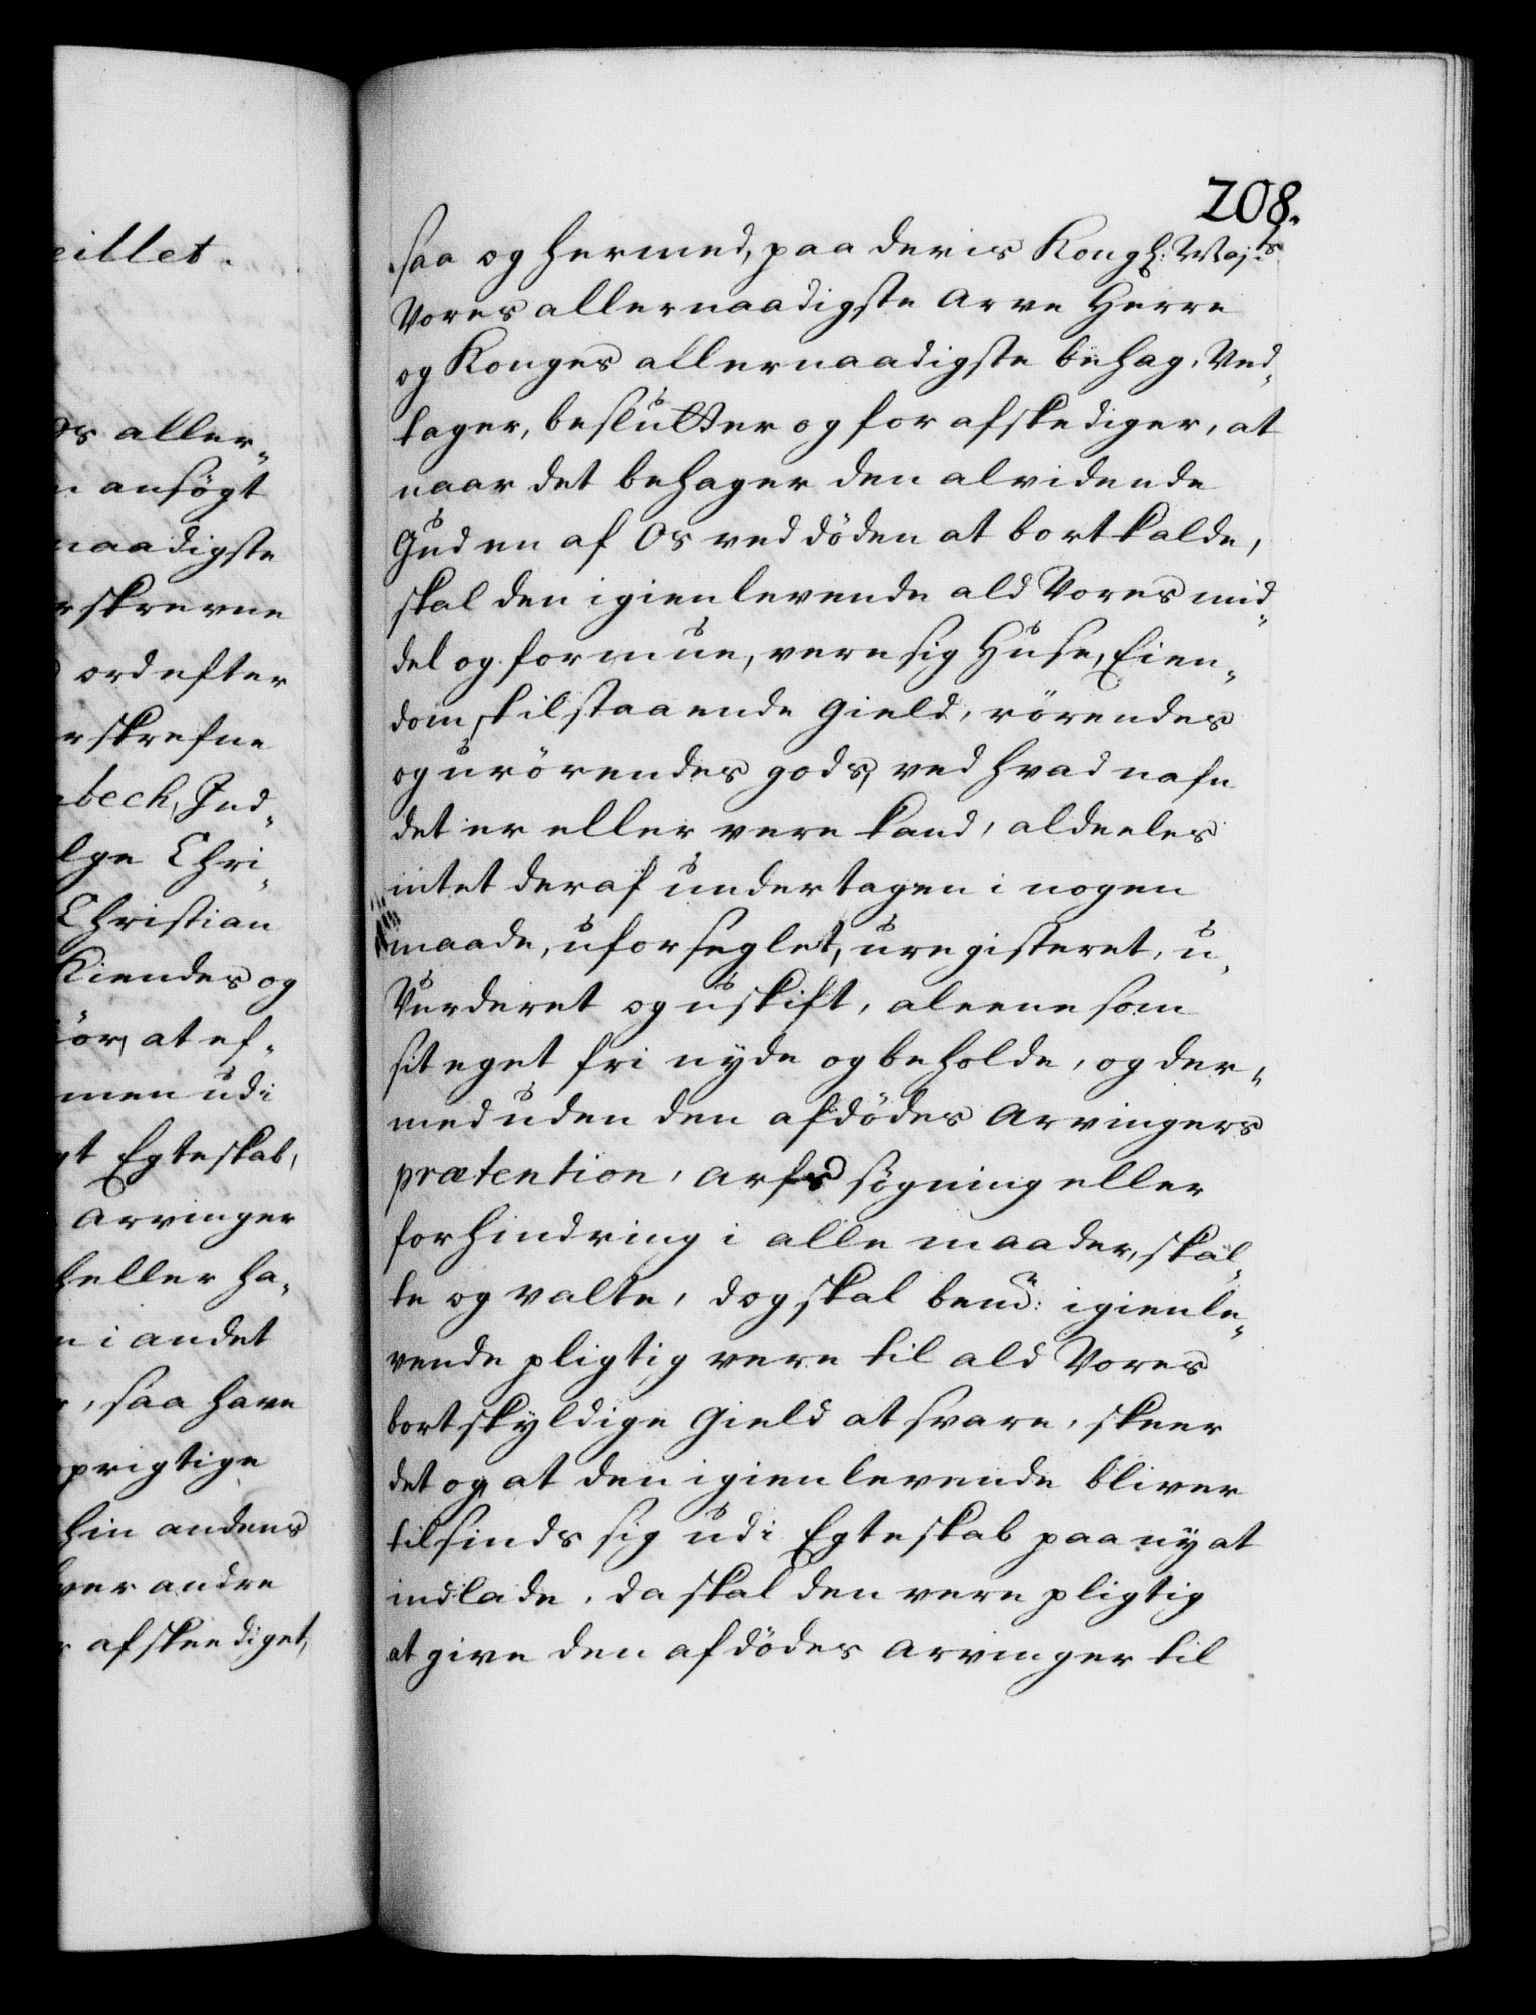 eillet.
ds aller„
n ansögt
naadigste
rskrevne
ord efter
rskrefne
bech, Ind„
lge Chri„
Christian
Kiendes og
iör, at ef„
men udi
gt Egteskab,
Arvinger
heller ha„
n i andet
r, saa have
prigtige
hin andens
ver andre
r afskeediget,
208.
saa og hermed, paa deris Kongl: Majts
Vores allernaadigste Arve Herre
og Konges allernaadigste behag, Ved„
tager, beslutter og for afskediger, at
naar det behager den alvidende
Gud en af Os ved döden at bortkalde,
skal den igienlevende ald Vores mid„
del og formue, vere sig Huse, Eien„
dom, tilstaaende Gield, rörendes
og urörendes gods, ved hvad nafn
det er eller vere kand, aldeeles
intet deraf undertagen i nogen
maade, uforseglet, uregisteret, u„
Vurderet og uskift, aleene som
sit eget fri nyde og beholde, og der„
med uden den afdödes Arvingers
prætention, Arfs søgning eller
forhindring i alle maader, skal„
te og valte, dog skal bemte: igienle„
vende pligtig vere til ald Vores
bortskyldige Gield at svare, skeer
det og, at den igienlevende bliver
tilsinds sig udi Egteskab paa ny at
indlade, da skal den vere pligtig
at give den afdödes Arvinger til